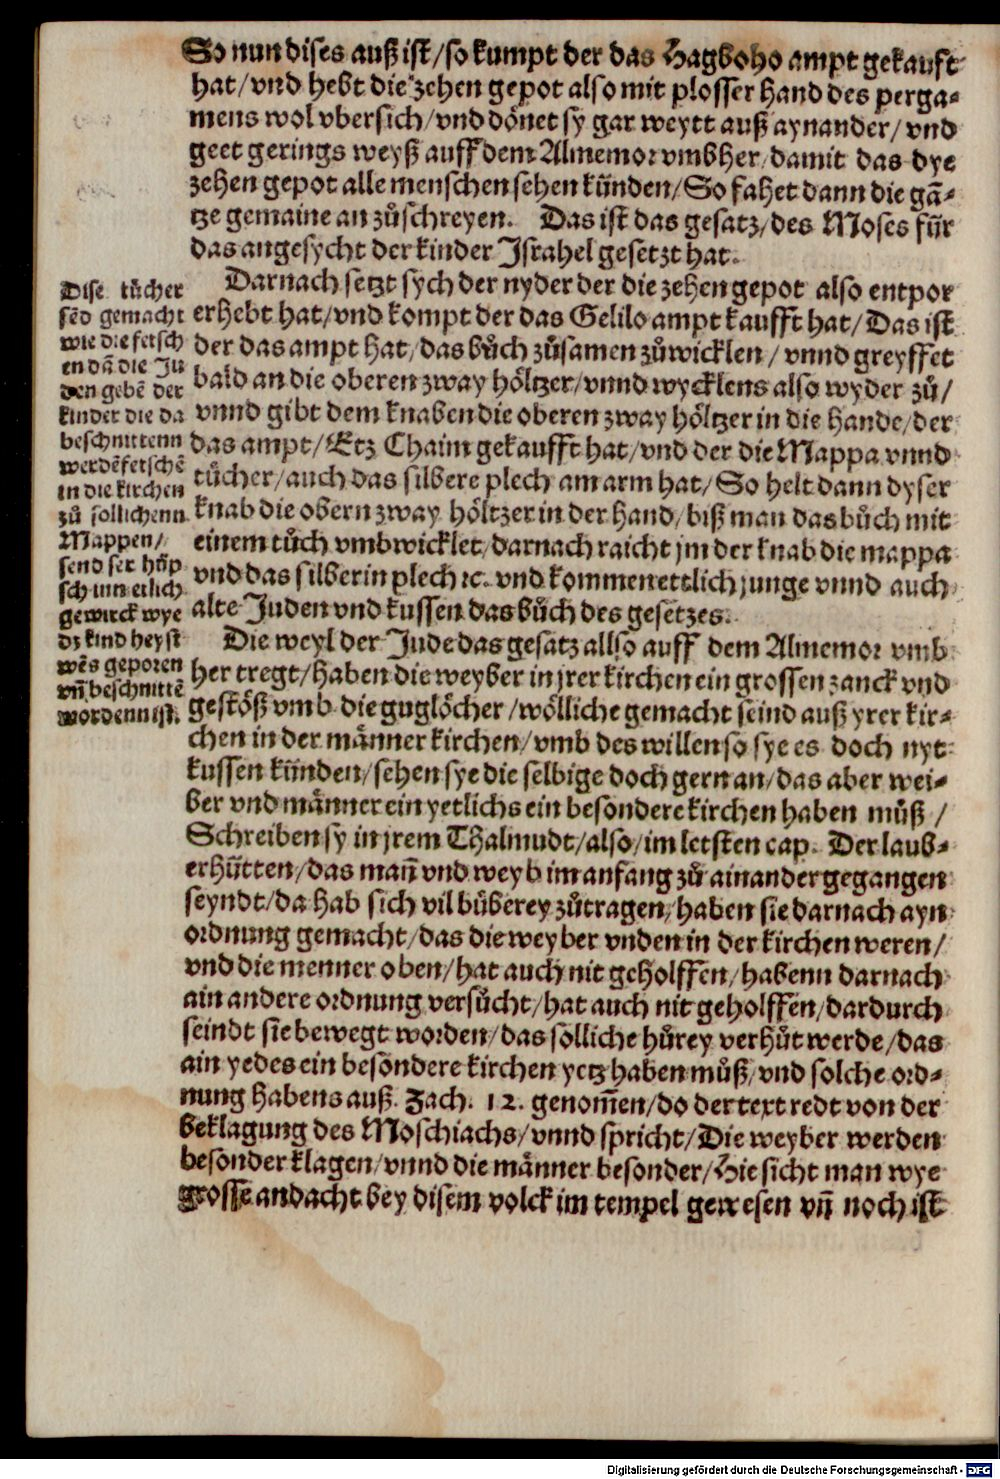 So nun dises auß ist/so kumpt der das Hagboho ampt gekauft
hat/vnd hebt die zehen gepot also mit plosser hand des perga-
mens wol vbersich/vnd dönet sy gar weytt auß aynander/vnd
geet gerings weyß auff dem Almemor vmbher/damit das dye
zehen gepot alle menschen sehen künden/So fahet dann die gā-
tze gemaine an zůschreyen. Das ist das gesatz/des Moses für
das angesycht der kinder Israhel gesetzt hat.
Darnach setzt sych der nyder der die zehen gepot also entpor
erhebt hat/vnd kompt der das Gelilo ampt kaufft hat/Das ist
der das ampt hat/das bůch zůsamen zůwicklen/vnnd greyffet
bald an die oberen zway höltzer/vnnd wycklens also wyder zů/
vnnd gibt dem knaben die oberen zway höltzer in die hande/der
das ampt/Etz Chaim gekaufft hat/vnd der die Mappa vnnd
tůcher/auch das silbere plech am arm hat/So helt dann dyser
knab die obern zway höltzer in der hand/biß man das bůch mit
einem tůch vmbwicklet/darnach raicht jm der knab die mappa
vnd das silberin plech ⁊c. vnd kommen ettlich junge vnnd auch
alte Juden vnd kussen das bůch des gesetzes.
Die weyl der Jude das gesatz allso auff dem Almemor vmb
her tregt/haben die weyber in jrer kirchen ein grossen zanck vnd
gestöß vmb die guglöcher/wölliche gemacht seind auß yrer kir-
chen in der männer kirchen/vmb des willen so sye es doch nyt
kussen künden/sehen sye die selbige doch gern an/das aber wei-
ber vnd männer ein yetlichs ein besondere kirchen haben můß/
Schreiben sy in jrem Thalmudt/also/im letsten cap. Der laub-
erhütten/das mañ vnd weyb im anfang zů ainander gegangen
seyndt/da hab sich vil bůberey zůtragen/haben sie darnach ayn
ordnung gemacht/das die weyber vnden in der kirchen weren/
vnd die menner oben/hat auch nit geholffen/habenn darnach
ain andere ordnung versůcht/hat auch nit geholffen/dardurch
seindt sie bewegt worden/das solliche hůrey verhůt werde/das
ain yedes ein besondere kirchen yetz haben můß/vnd solche ord-
nung habens auß. Zach. 12. genom̄en/do der text redt von der
beklagung des Moschiachs/vnnd spricht/Die weyber werden
besonder klagen/vnnd die männer besonder/Hie sicht man wye
grosse andacht bey disem volck im tempel gewesen vñ noch ist
Dise tůcher
sēd gemacht
wie die fetsch
en dā die Ju
den gebē der
kinder die da
beschnittenn
werdē fetschē
in die kirchen
zů sollichenn
Mappen/
send ser hüp
sch vnn etlich
gewirck wye
dz kind heyst
wēs geporen
vñ beschnittē
worden ist.
Digitalisierung gefördert durch die Deutsche Forschungsgemeinschaft - DFG